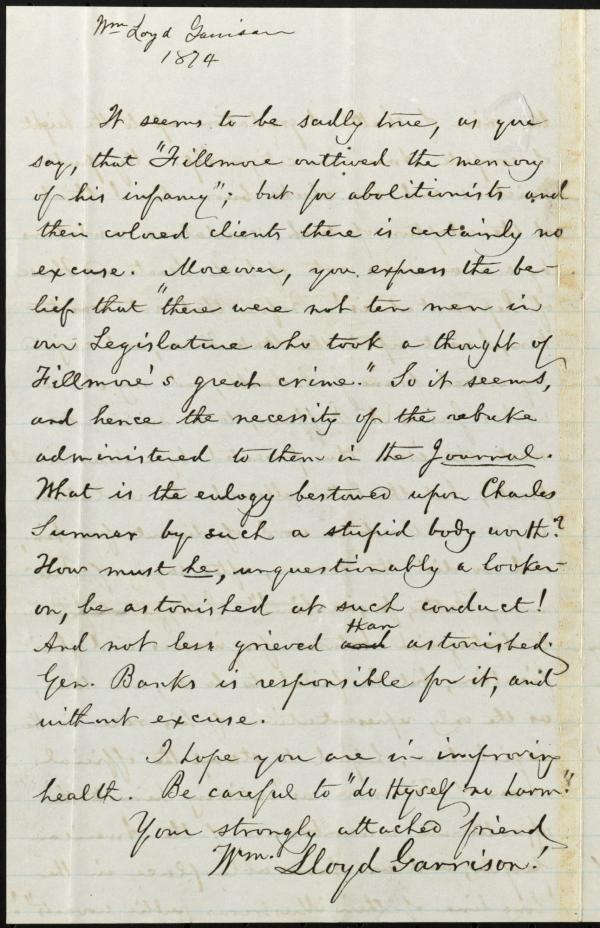 Wm Loyd Garrison
1874
It seems to be sadly true, as you
say, that "Fillmore outlived the memory
of his infamy"; but for abolitionists and
their colored clients there is certainly no
excuse. Moreover, you express the be-
lief that "there were not ten men in
our Legislature who took a thought of
Fillmore's great crime." So it seems,
and hence the necessity of the rebuke
administered to them in the Journal.
What is the eulogy bestowed upon Charles
Sumner by such a stupid body worth?
How must he, unquestionably a looker-
on, be astonished at such conduct!
And not less grieved and than astonished.
Gen. Banks is responsible for it, and
without excuse.
I hope you are in improving
health. Be careful to "do thyself no harm."
Your strongly attached friend
Wm. Lloyd Garrison.